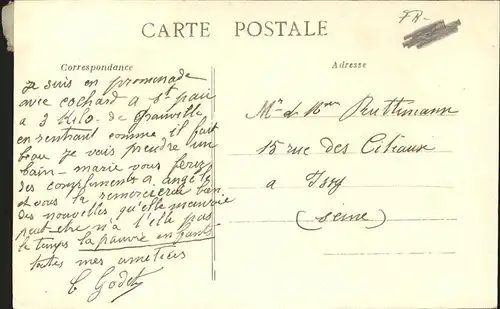 CARTE POSTALE
FR-
Correspondance
Adresse
Je suis en promenade
avec cochard a St pair
a 3 Kilo- de Granville
en rentrant comme il fait
beau je vais prendre un
bain- marie vous ferez
des compliments a angèle
et vous la remercierez bien
des nouvelles qu'elle m'envoie
peut-etre n'a t'elle pas
le temps la pauvre enfant
toutes mes amitiés
Godet
Mr & Mme Ruttmann
15 rue des Citeaux
a Issy
(Seine)